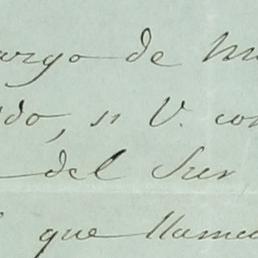 argo de
do, si V. con
del Sur
que llame